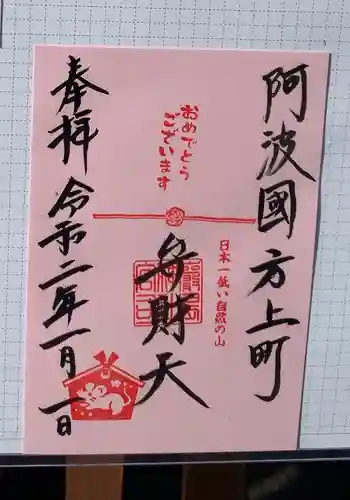 阿波國方上町
日本一低い自然の山
おめでとう
ございます
弁財天
奉拝
令和二年一月一日